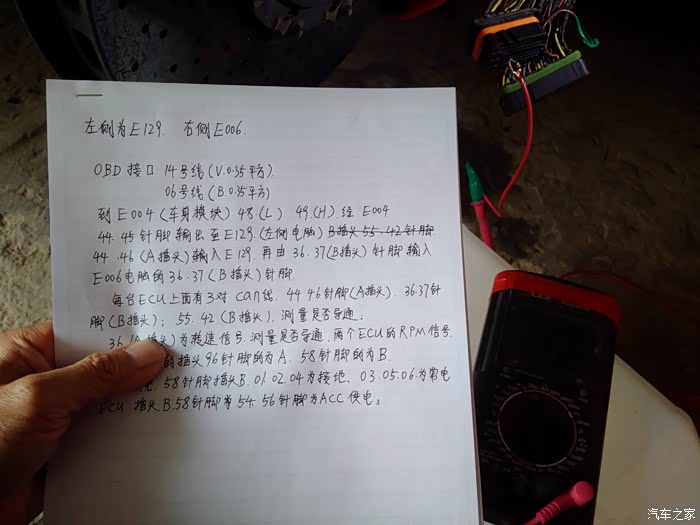 左侧为E129. 右侧E006.
OBD接口 14号线(V.0.35平方)
06号线(B.0.35平方)
到E004(车身模块) 48.(L) 49.(H).经E004
44.45针脚输出至E129.(左侧电脑) B插头55.42针脚
44.46(A插头)输入E129.再由36.37(B插头)针脚输入
E006电脑的36.37(B插头)针脚.
每台ECU上面有3对can线. 44 46针脚(A插头). 36.37针
脚(B插头); 55.42(B插头). 测量是否导通.
36.(A插头)为转速信号.测量是否导通.两个ECU的RPM信号.
的插头96针脚的为A. 58针脚的为B.
58针脚插头B. 01.02.04为接地. 03.05.06.为常电
ECU 插头B.58针脚 54.56针脚为ACC供电;
汽车之家